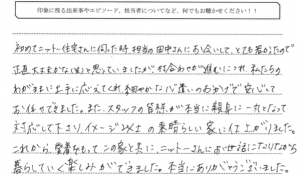 印象に残る出来事やエピソード、担当者についてなど、何でもお聞かせください！！
初めてニットー住宅さんに伺った時、担当の田中さんにお会いして、とても若かったので
正直大丈夫かな(笑)と思っていましたが、打合わせが進むにつれ、私たちの
わがままに上手に応えてくれ、きめ細やかな心遣いのおかげで安心して
お任せできました。また、スタッフの皆様が本当に親身に一丸となって
対応して下さり、イメージ以上の素晴らしい家に仕上がりました。
これから、愛着をもってこの家と共に、ニットーさんにお世話になりながら
暮らしていく楽しみができました。本当にありがとうございました。